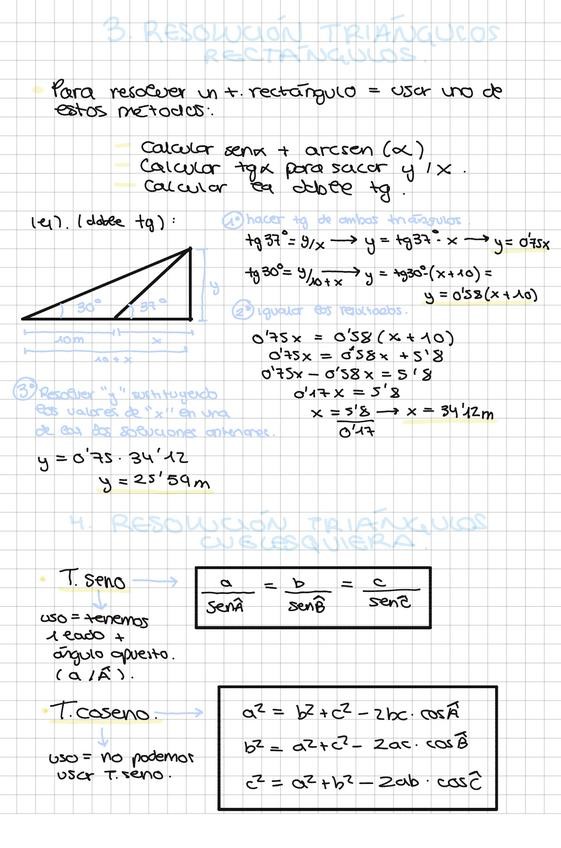 3. RESOLUCIÓN TRIÁNGULOS
RECTÁNGULOS.
Para resolver un t. rectángulo = usar uno de
estos métodos:
Calcular senα + arcsen (α)
Calcular tgα para sacar y / x.
Calcular la doble tg.
1ej. (doble tg):
1º hacer tg de ambos triángulos.
tg37° = y/x → y = tg37° · x → y = 0'75x
tg30° = y/10+x → y = tg30° · (x+10) =
y = 0'58(x+10)
30°
37°
y
10m
x
10+x
2º igualar los resultados.
0'75x = 0'58(x+10)
0'75x = 0'58x + 5'8
0'75x − 0'58x = 5'8
0'17x = 5'8
x = 5'8/0'17 → x = 34'12m
3º Resolver "y" sustituyendo
los valores de "x" en una
de las dos soluciones anteriores.
y = 0'75 · 34'12
y = 25'59m
4. RESOLUCIÓN TRIÁNGULOS
CUALESQUIERA.
T. seno →
a/senÂ = b/senB̂ = c/senĈ
uso = tenemos
1 lado +
ángulo opuesto.
(a / Â).
T. coseno. →
a² = b² + c² − 2bc · cosÂ
b² = a² + c² − 2ac · cosB̂
c² = a² + b² − 2ab · cosĈ
uso = no podemos
usar T. seno.